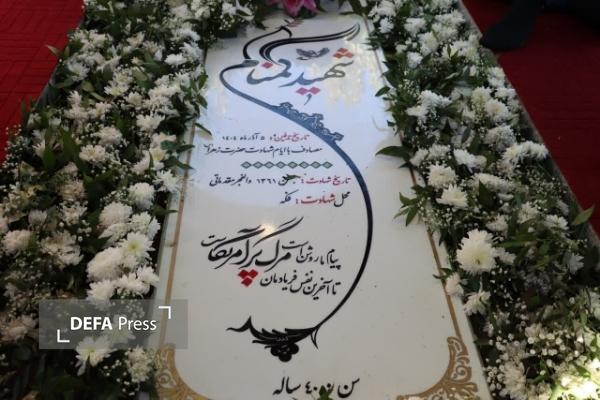 شهید گمنام
تاریخ تدفین: ۵ آذر ماه ۱۴۰۴
مصادف با ایام شهادت حضرت زهرا
تاریخ شهادت: ۱۳۶۱ والفجر مقدماتی
محل شهادت: فکه
پیام ما روشن است مرگ بر آمریکاست
تا آخرین نفس فریادمان
سن ۴۰ ساله
DEFA Press